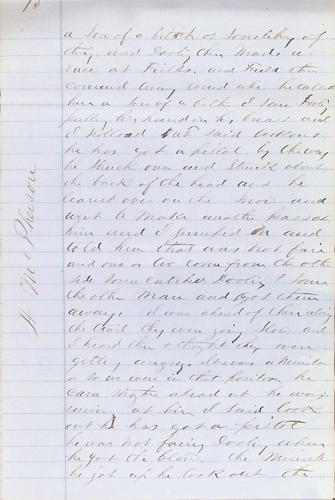 a son of a bitch or something of
this and Dooly then made a
race at Fields and Field then
coming away and he called
him a son of a bitch I saw Dooly
putting his hand in his breast and
I hollood out said lookout
he has got a pistol by
he Struck over and Struck about
the back of the head and he
leaned over on the and
went to make another pass at
him and I jumped in and
told him that was not fair
and one or two come from the other
side Some catched Dooly & Some
the other Man and got them
away. I was ahead of them along
the trail they were going Slow and
I heard them & thought they were
getting angry. It was a Minute
or so we were in that position he
came Straight ahead at he was
at him I said look
out he has got a pistol
he was not facing Dooly when
he got the blow. The Minute
he got up he took out the
H McPherson